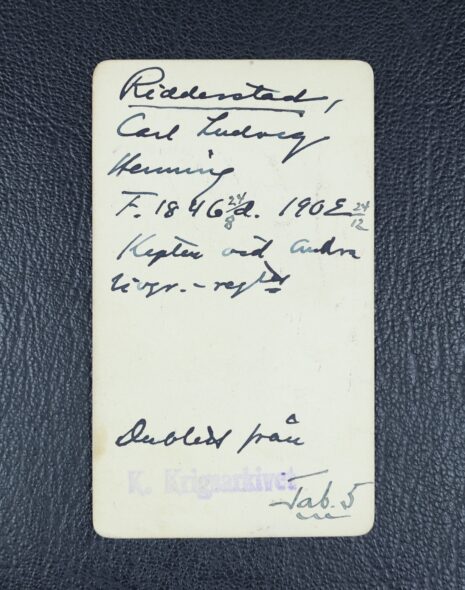 Ridderstad,
Carl Ludvig
Henning
F. 1846 24/8 d. 1902 24/12
Kapten vid Andra
livgr.-regtet
Dublett från
K. Krigsarkivet
Tab. 5